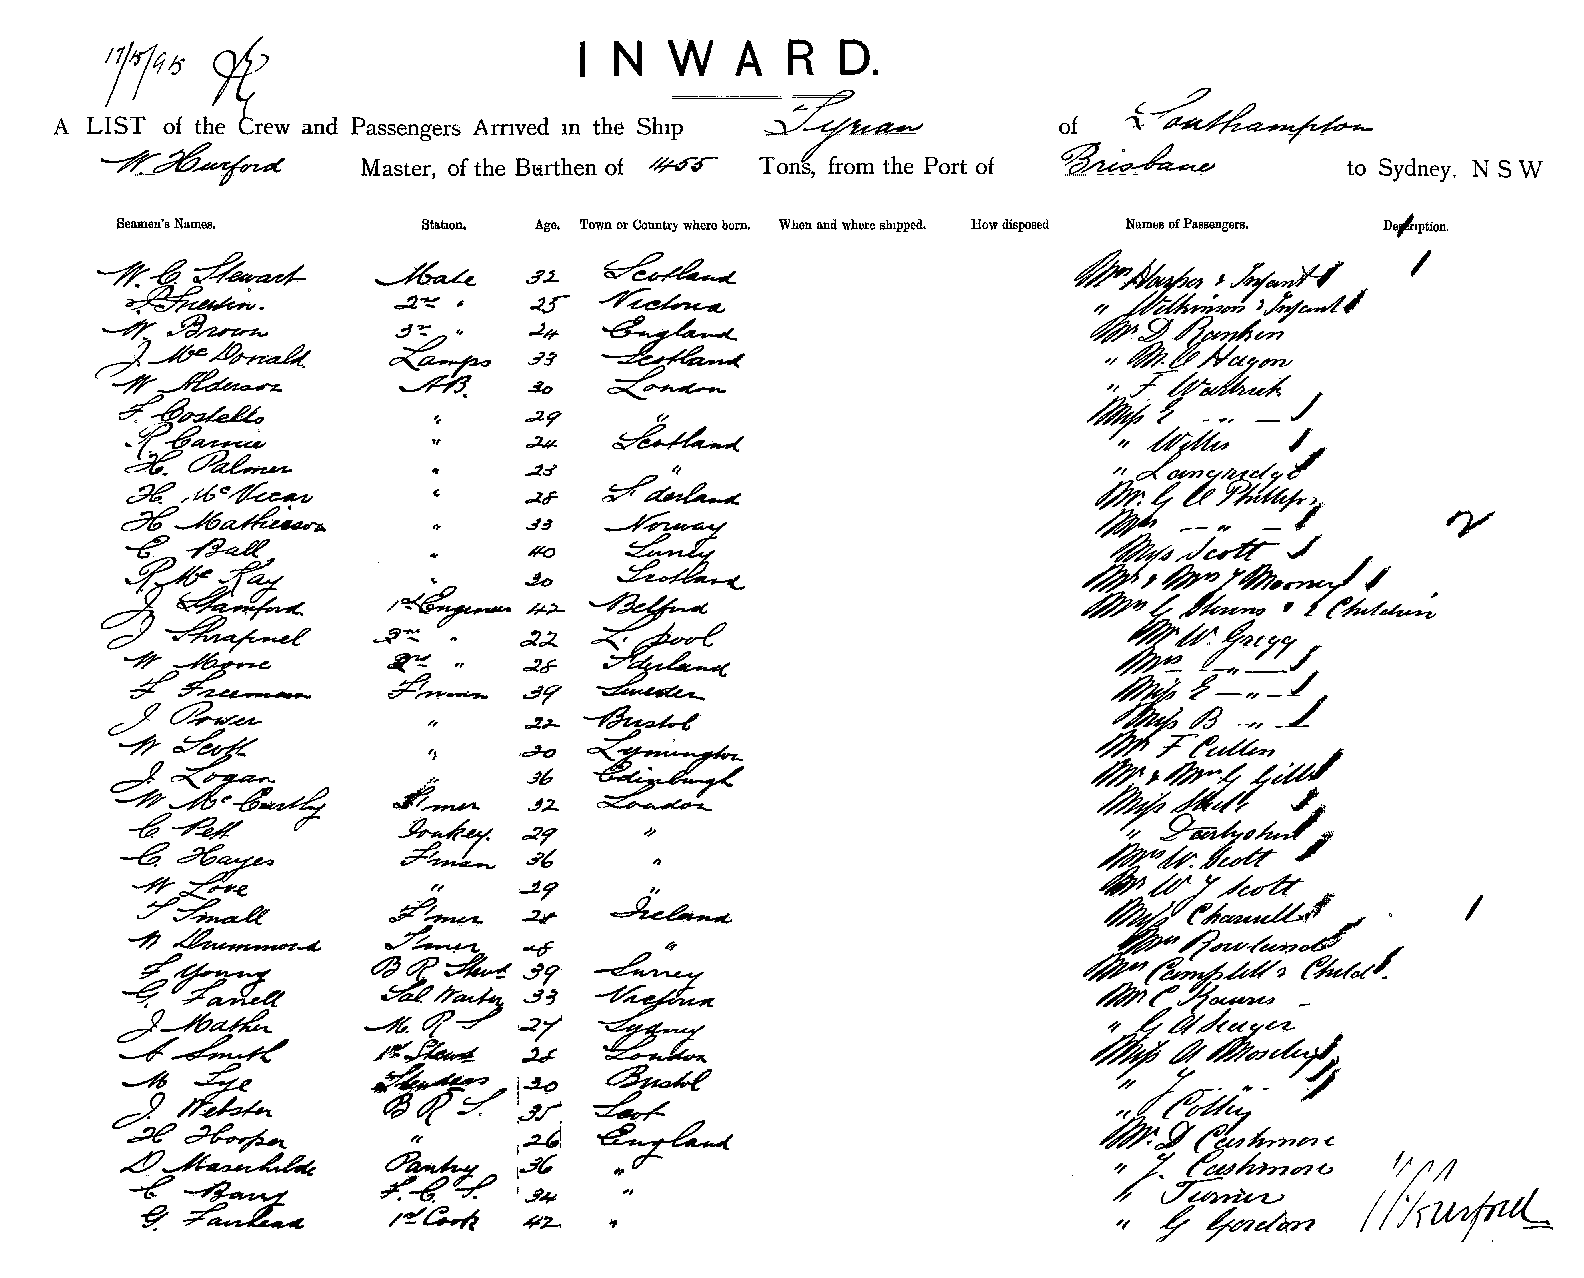 17/5/95
INWARD.
A LIST of the Crew and Passengers Arrived in the Ship Tyrian of Southampton
W. Hurford Master, of the Burthen of 1455 Tons, from the Port of Brisbane to Sydney, N S W
Seamen's Names. Station. Age. Town or Country where born. When and where shipped. How disposed Names of Passengers. Description.
W. C. Stewart Mate 32 Scotland Mrs Harper & Infant 1
2nd " 25 Victoria " Wilkinson & Infant
W. Brown 3rd " 24 England Mr D Rankin
J. McDonald Lamps 33 Scotland " M. C Hagon
W Alderson A.B. 30 London " F
F. Costello " 29 " Miss E — " —
R Carnie " 24 Scotland " Willis
H. Palmer " 23 " " Langridge
H. McVicar " 28 S'derland Mr. G A Phillips
H Mathieson " 33 Norway Mrs — " — 2
C Ball " 40 Miss Scott
R. McKay " 30 Scotland Mr & Mrs J Mooney
J. Stamford 1st Engineer 42 Belford Mrs G Stevens & 2 Children
J Shrapnel 2nd " 22 L'pool Mr W. Gregg
W Moore 3rd " 28 S'derland Mrs — " —
F Freeman F'man 39 Sweden Miss E — " —
J. Power " 22 Bristol Miss B — " —
W Scott " 30 Lymington Mr F Cullen
J. Logan " 36 Edinburgh Mr & Mrs G Gill
W McCarthy T'mer 32 London Miss
C Pett Donkey. 29 " " Darbyshire
C. Hayes F'man 36 " Mrs W. Scott
W Love " 29 " Mr W J Scott
T Small T'mer 28 Ireland Miss Charnell 1
W Drummond T'mer 28 " Mrs Rowlands
F Young B R Stwd 39 Surrey Mrs Campbell & Child.
G. Farrell Sal Waiter 33 Victoria Mr C
J Mather M. R S 27 Sydney " G
A Smith 1st Stewd 28 London Miss A Moseley
M Lye Stewdess 30 Bristol " J "
J. Webster B R S. 35 Scot " Colley
H Hooper " 26 England Mr. D Cashmore
D Pantry 36 " " J. Cashmore
C Barry F. C. S. 34 " " Turner
G. Fairhead 1st Cook 42 " " G Gordon
W Hurford